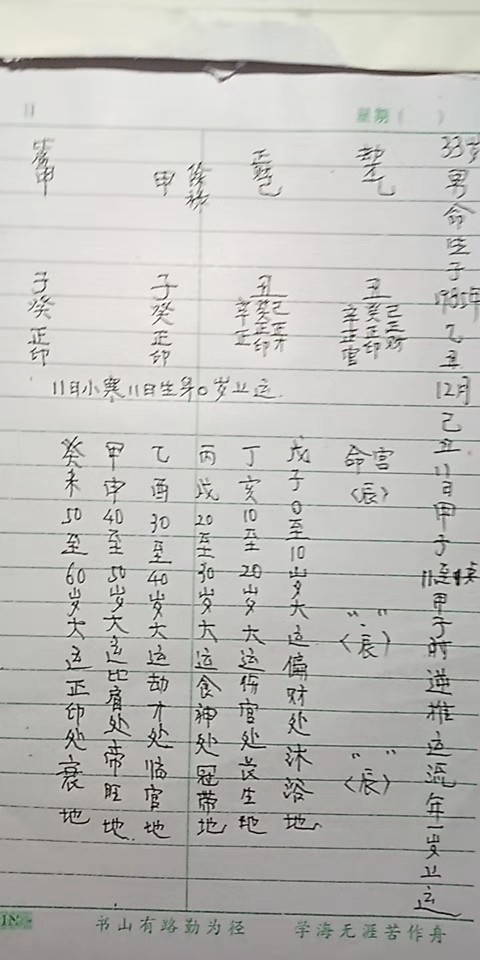 星期（ ）
33岁男命生于1985年乙丑12月己丑11日甲子11点甲子时逆推运流年一岁上运
劫才乙
丑
己正财
癸正印
辛正官
正财己
丑
己正才
癸正印
辛正
甲
子癸正印
甲
子癸正印
11日小寒11日生算0岁上运.
命宫（辰）
〃〃（辰）
〃〃（辰）
戊子0至10岁大运偏财处沐浴地.
丁亥10至20岁大运伤官处长生地
丙戌20至30岁大运食神处冠带地
乙酉30至40岁大运劫才处临官地
甲申40至50岁大运比肩处帝旺地.
癸未50至60岁大运正印处衰地
书山有路勤为径 学海无涯苦作舟